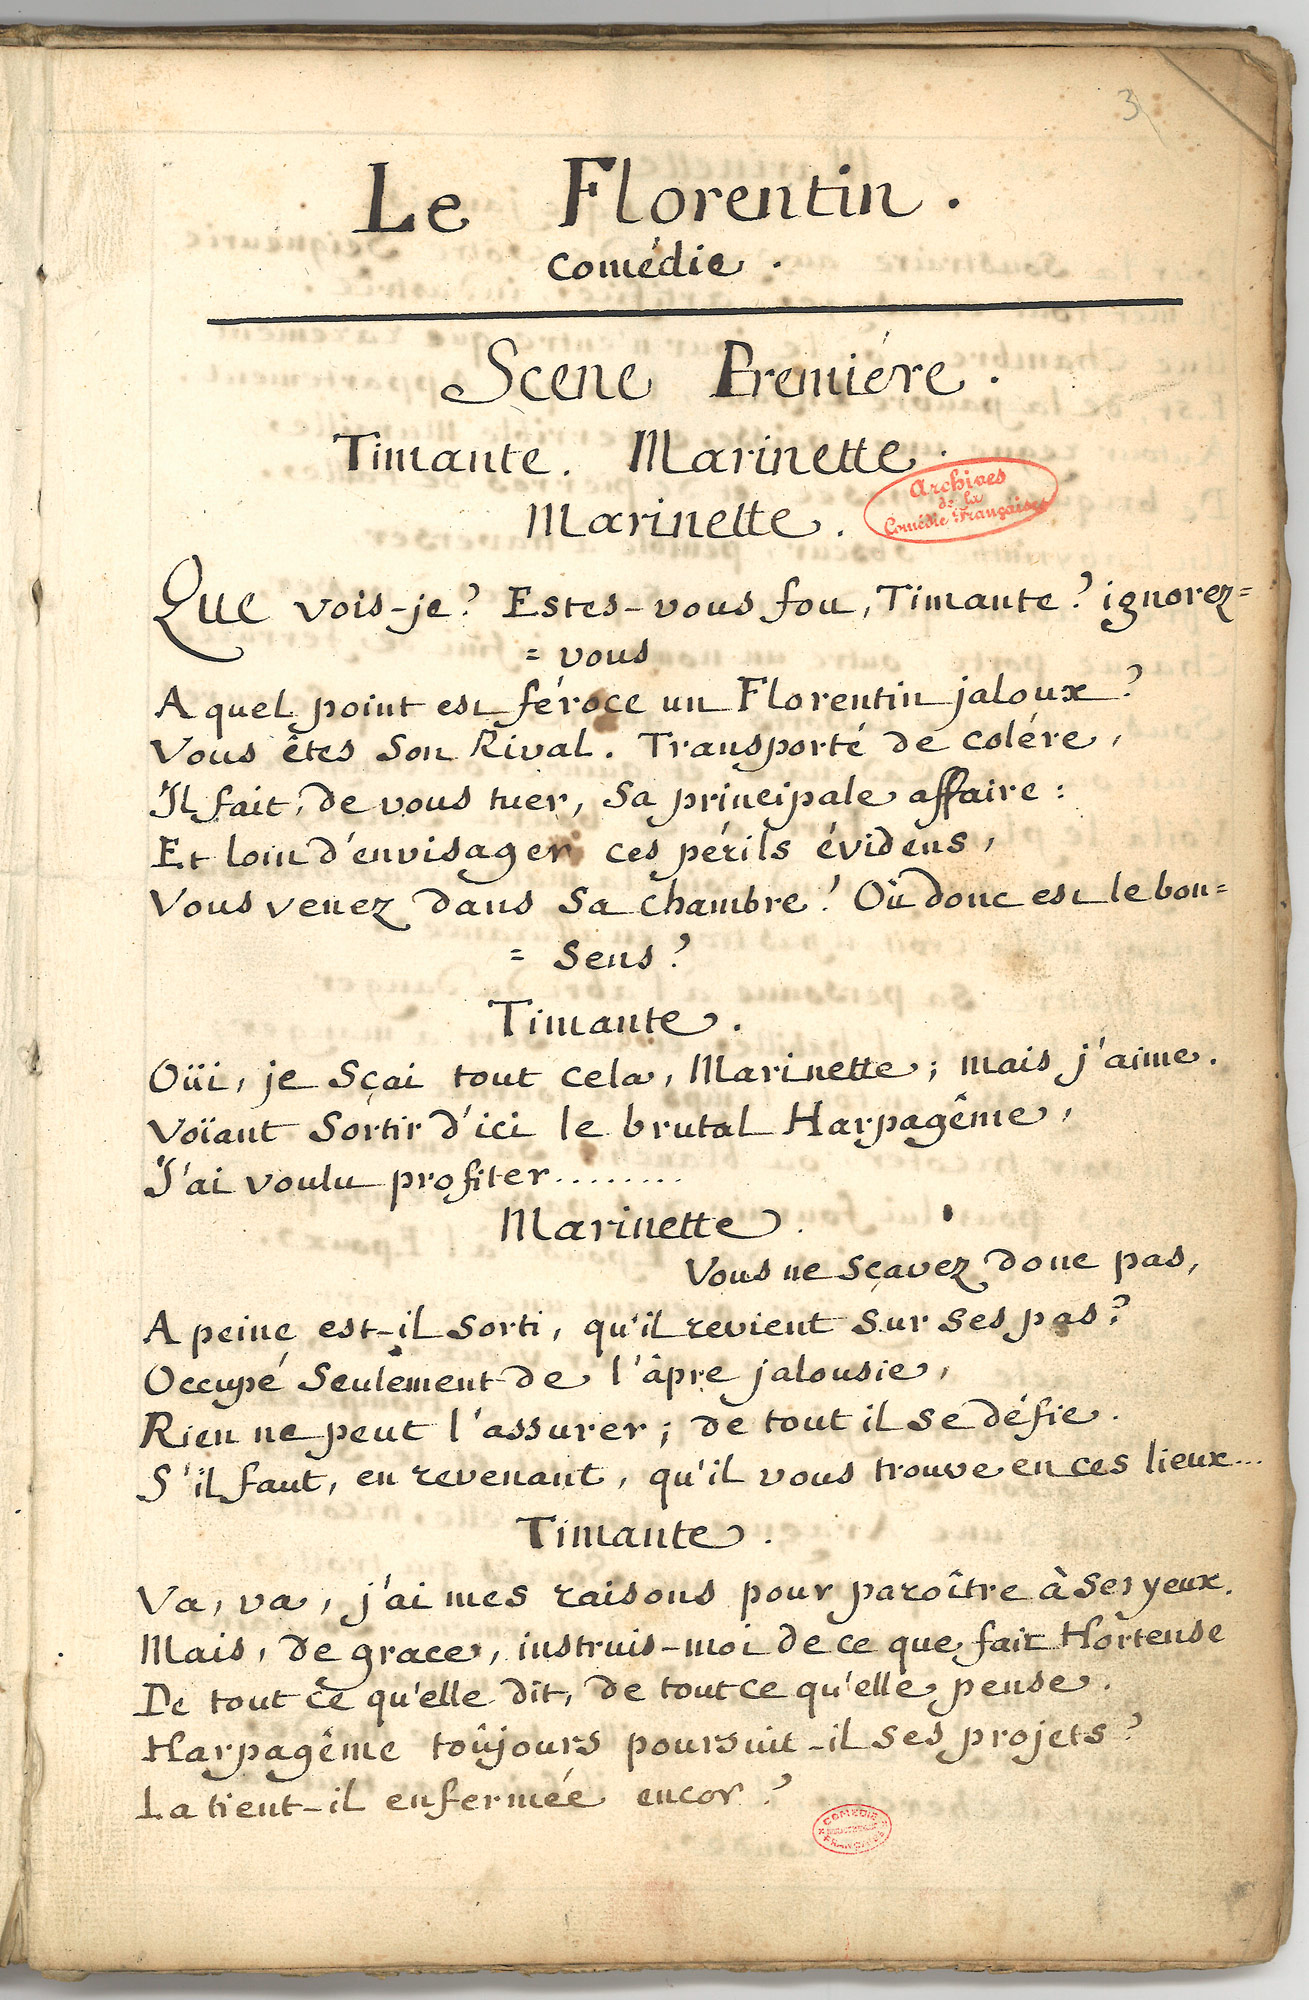 3
Le Florentin.
Comédie.
Scene Premiére.
Timante. Marinette.
Archives
de la
Comédie Française
Marinette.
Que vois-je? Estes-vous fou, Timante? ignorez=
= vous
A quel point est féroce un Florentin jaloux?
Vous êtes Son Rival. Transporté de colére,
Il fait, de vous tuer, Sa principale affaire:
Et loin d'envisager ces périls évidens,
Vous venez dans Sa chambre! Où donc est le bon=
= Sens?
Timante.
Oüi, je Sçai tout cela, Marinette; mais j'aime.
Voïant Sortir d'ici le brutal Harpagême,
J'ai voulu profiter.........
Marinette.
Vous ne Sçavez donc pas,
A peine est-il Sorti, qu'il revient Sur Ses pas?
Occupé Seulement de l'âpre jalousie,
Rien ne peut l'assurer; de tout il Se défie.
S'il faut, en revenant, qu'il vous trouve en ces lieux...
Timante.
Va, va, j'ai mes raisons pour paroître à Ses yeux.
Mais, de grace, instruis-moi de ce que fait Hortense
De tout ce qu'elle dit, de tout ce qu'elle pense.
Harpagême toûjours poursuit-il Ses projets?
La tient-il enfermée encor?
COMÉDIE
FRANÇAISE